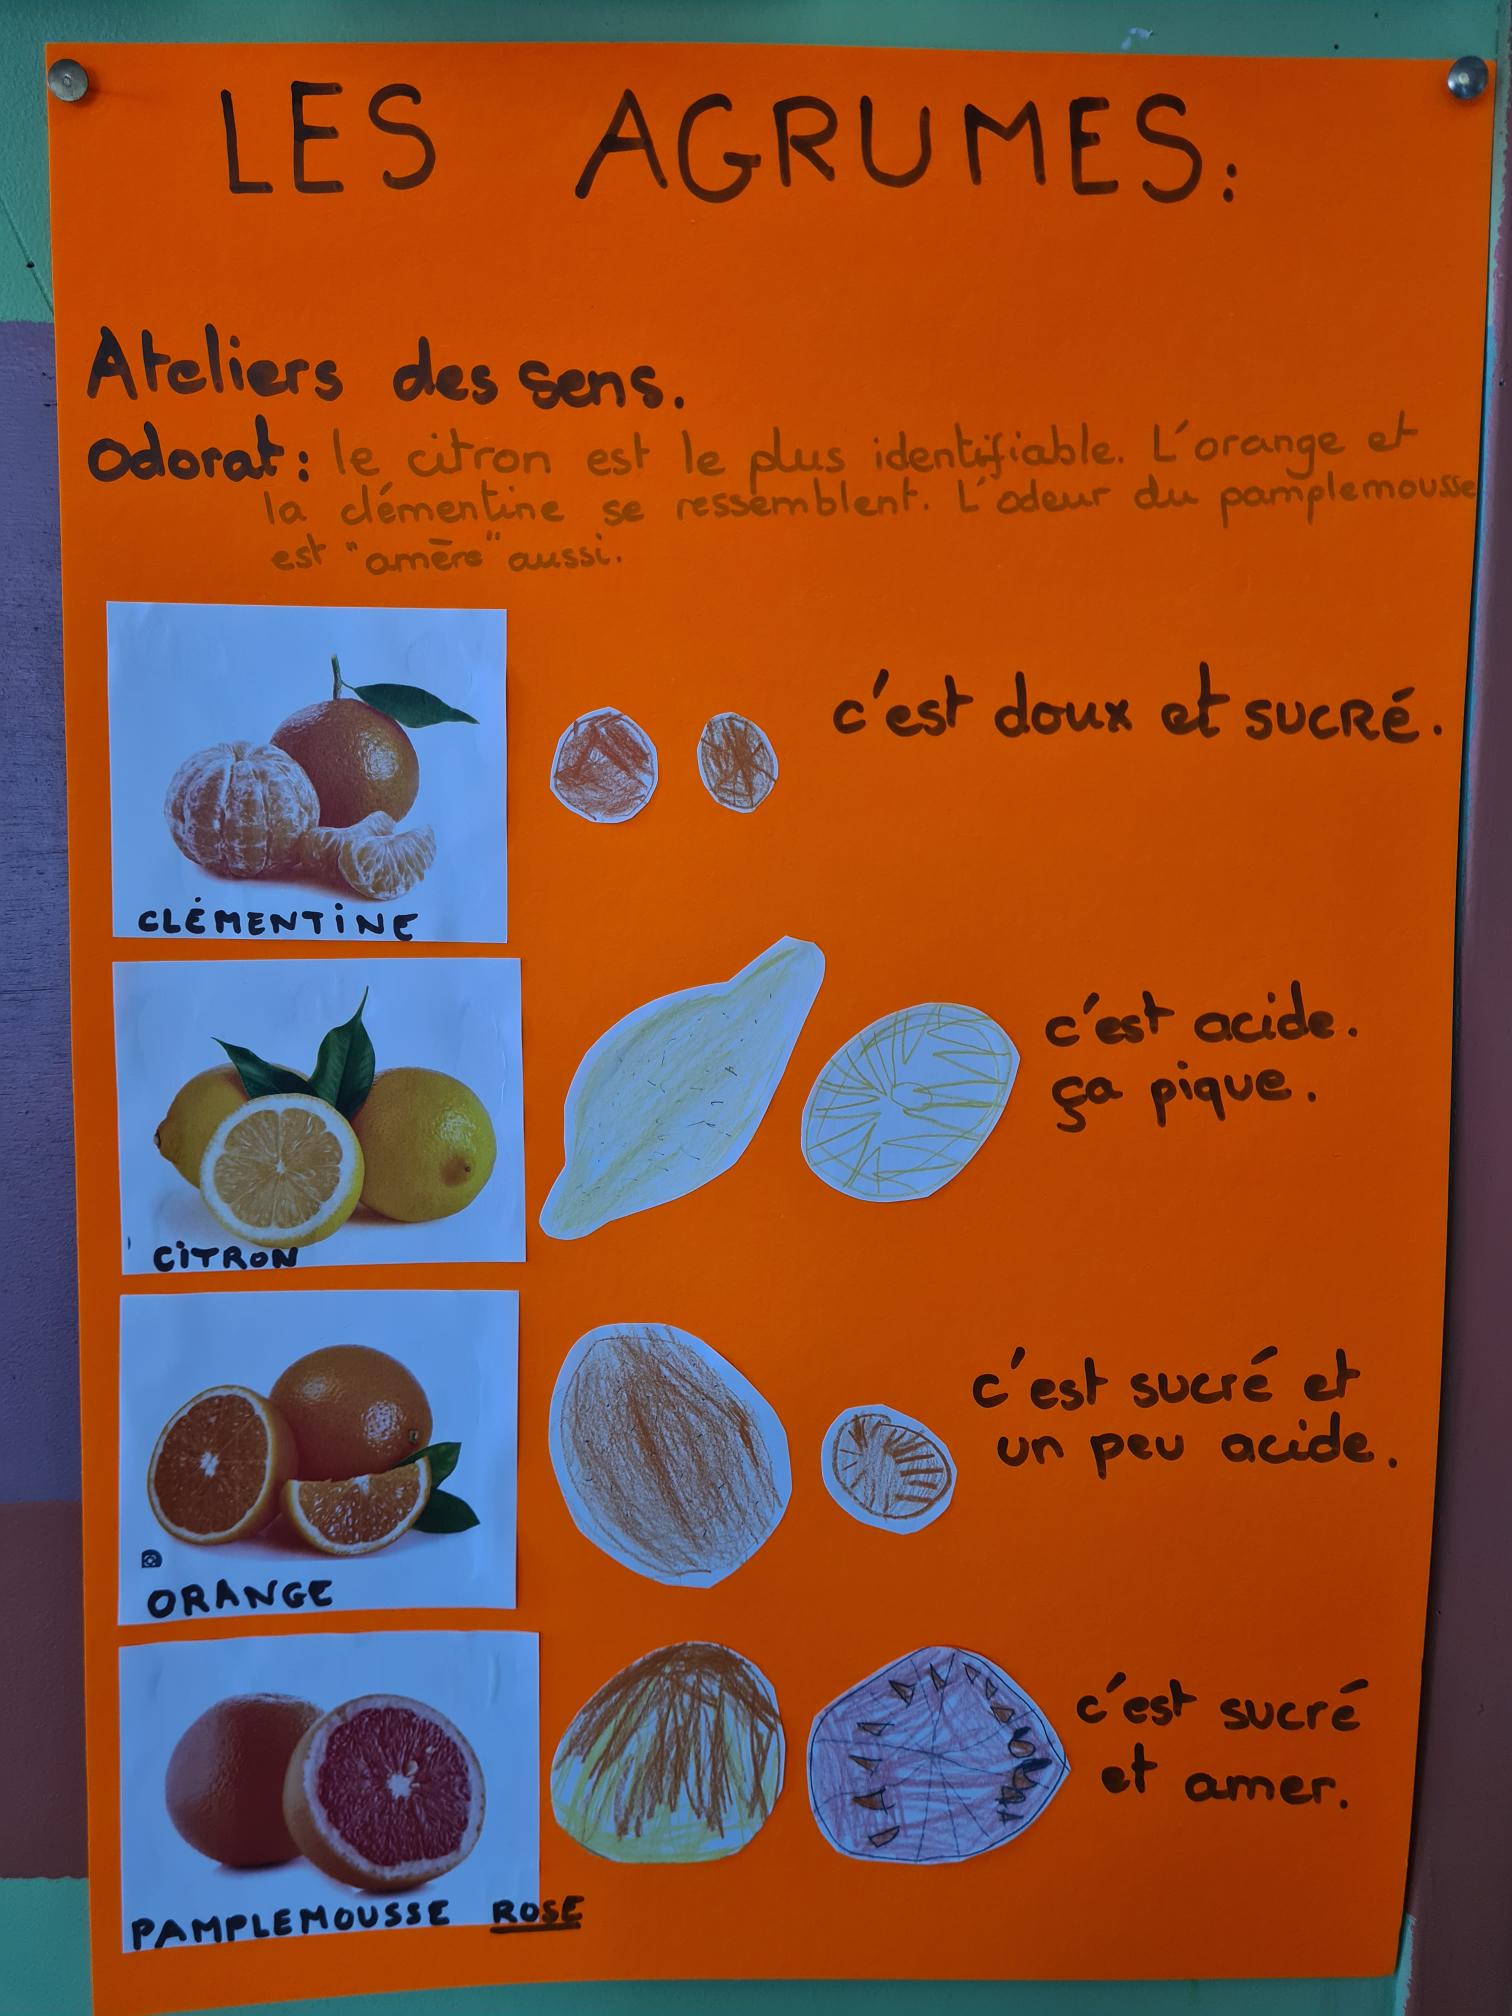 LES AGRUMES:
Ateliers des sens.
Odorat: le citron est le plus identifiable. L'orange et
la clémentine se ressemblent. L'odeur du pamplemousse
est "amère" aussi.
c'est doux et sucré.
CLÉMENTINE
c'est acide.
ça pique.
CITRON
c'est sucré et
un peu acide.
ORANGE
c'est sucré
et amer.
PAMPLEMOUSSE ROSE